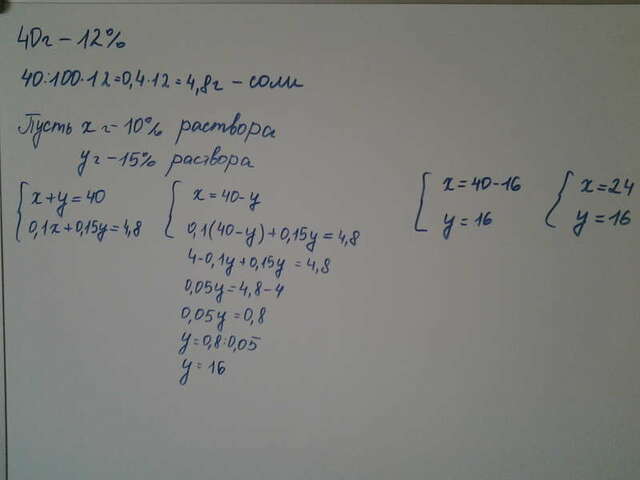 40г – 12%
40:100·12=0,4·12=4,8г – соли
Пусть x г – 10% раствора
y г – 15% раствора
x+y=40
0,1x+0,15y=4,8
x=40-y
0,1(40-y)+0,15y=4,8
4-0,1y+0,15y=4,8
0,05y=4,8-4
0,05y=0,8
y=0,8:0,05
y=16
x=40-16
y=16
x=24
y=16